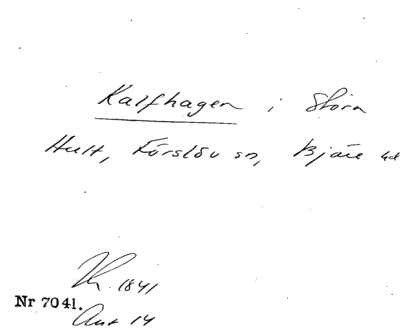 Kalfhagen i Stora
Hult, Förslöv sn, Bjäre hd
Th. 1841
Nr 7041.
Ant 14